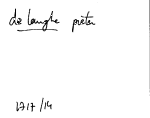 de Langhe pieter
1717/14